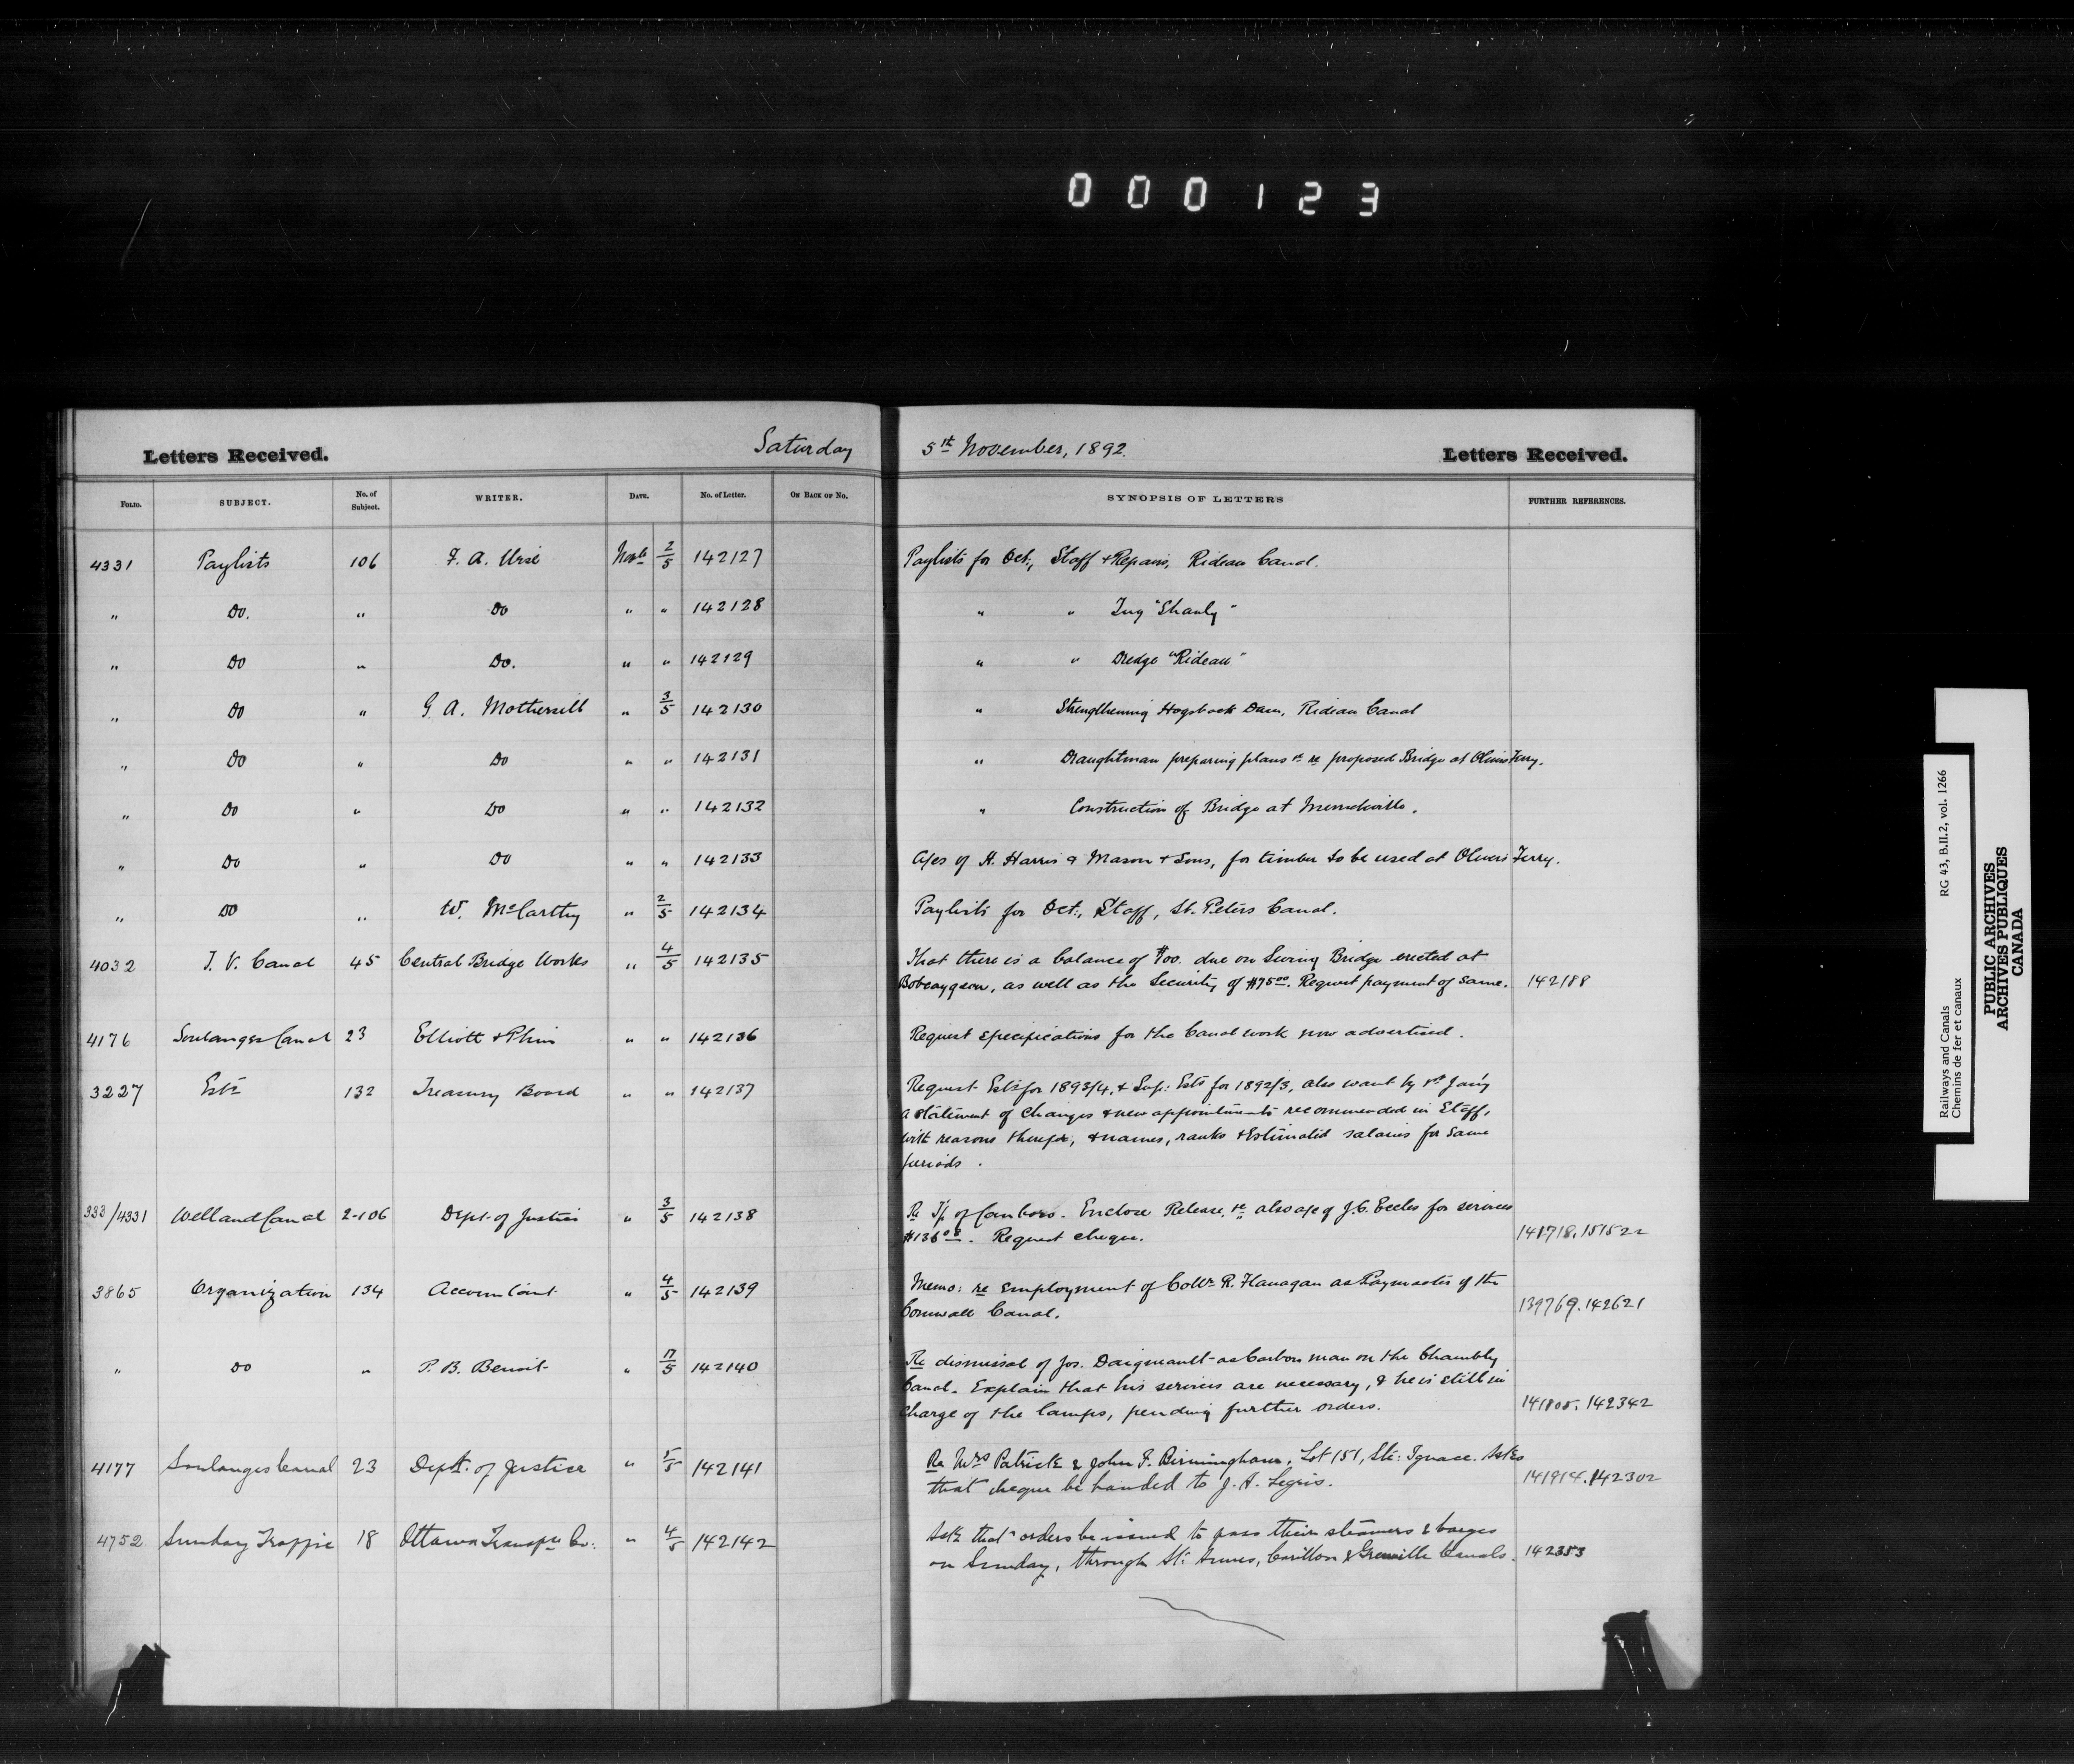 000123
Letters Received. Saturday 5th November, 1892. Letters Received.
FOLIO. SUBJECT. No. of Subject. WRITER. DATE. No. of Letter. ON BACK OF No. SYNOPSIS OF LETTERS FURTHER REFERENCES.
4331 Paylists 106 F. A. Wise Novr 2/5 142127 Paylists for Oct:, Staff & Repairs, Rideau Canal.
" Do. " Do " " 142128 " " Tug "Shanly"
" Do " Do. " " 142129 " " Dredge "Rideau"
" Do " G. A. Mothersill " 3/5 142130 " Strengthening Hogsback Dam, Rideau Canal
" Do " Do " " 142131 " Draughtman preparing plans &c re proposed Bridge at Olivers Ferry.
" Do " Do " " 142132 " Construction of Bridge at Merrickville.
" Do " Do " " 142133 A/cs of H. Harris & Mason & Sons, for timber to be used at Olivers Ferry.
" Do " W. McCarthy " 2/5 142134 Paylists for Oct:, Staff, St. Peters Canal.
4032 T. V. Canal 45 Central Bridge Works " 4/5 142135 That there is a balance of due on Swing Bridge erected at
Bobcaygeon, as well as the Security of $7500. Request payment of same. 142188
4176 Soulanges Canal 23 Elliott & Phin " " 142136 Request specifications for the Canal work now advertised.
3227 Ests 132 Treasury Board " " 142137 Request Ests for 1893/4, & Sup: Ests for 1892/3, also want by 1st Jan'y
a statement of changes & new appointments recommended in Staff,
with reasons therefor, & names, ranks & Estimated salaries for same
periods.
333/4331 Welland Canal 2-106 Dept. of Justice " 3/5 142138 Re T/p of Canboro. Enclose Release, &c also a/c of J. C. Eccles for services
Request cheque. 141718. 151522
3865 Organization 134 Accountant " 4/5 142139 Memo: re employment of R. Flanagan as Paymaster of the
Cornwall Canal. 139769. 142621
" Do " P. B. Benoit " 142140 Re dismissal of Jos. Daigneault as Carbon man on the Chambly
Canal. Explain that his services are necessary, & he is still in
charge of the lamps, pending further orders. 142342
4177 Soulanges Canal 23 Deptt. of Justice " 5/5 142141 Re Mrs Patrick & John F. Birmingham, Lot 151, Ste: Ignace. Asks
that cheque be handed to J. A. Legris. 141914. 142302
4752 Sunday Traffic 18 Ottawa Transpn Co: " 4/5 142142 Ask that orders be issued to pass their steamers & barges
on Sunday, through Ste: Annes, Carillon & Grenville Canals. 142353
Railways and Canals RG 43, B.II.2, vol. 1266
Chemins de fer et canaux
PUBLIC ARCHIVES
ARCHIVES PUBLIQUES
CANADA